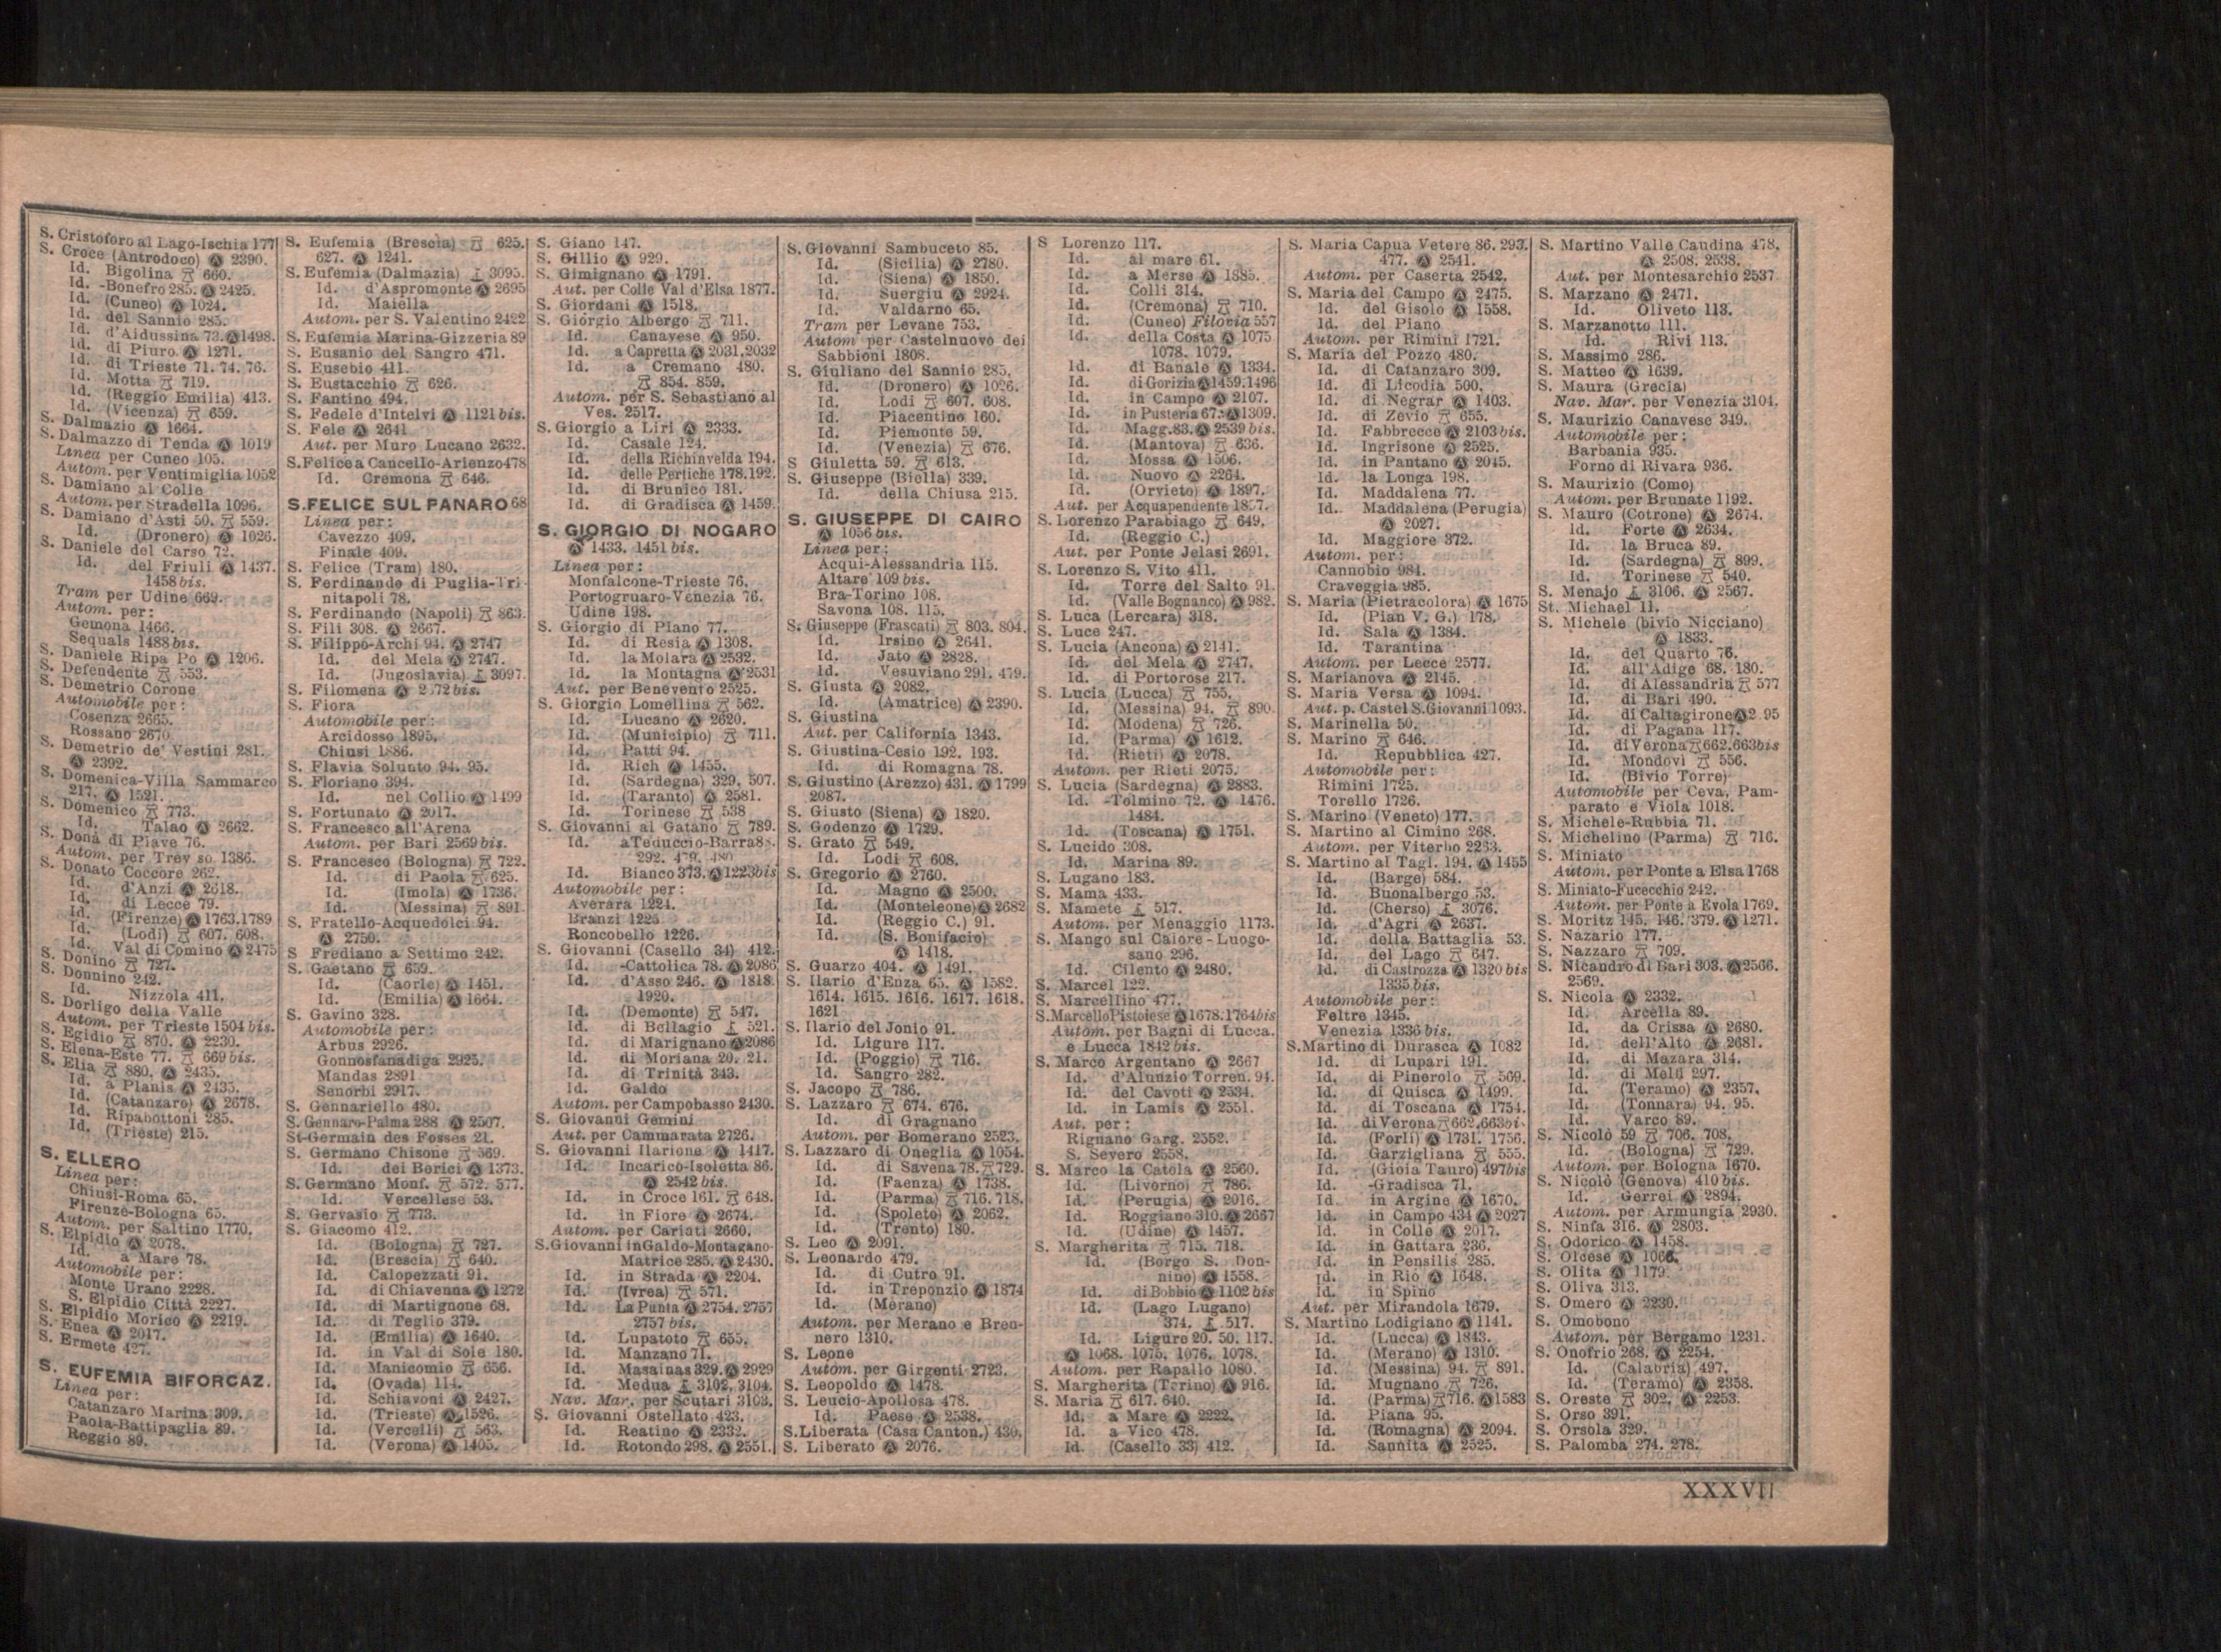 S. Cristoforo al Lago-Ischia 177
S. Croce (Antrodoco) Ⓐ 2390.
Id. Bigolina 660.
Id. -Bonefro 285. Ⓐ 2425.
Id. (Cuneo) Ⓐ 1024.
Id. del Sannio 285.
Id. d'Aidussina 73. Ⓐ 1498.
Id. di Piuro Ⓐ 1271.
Id. di Trieste 71. 74. 76.
Id. Motta 719.
Id. (Reggio Emilia) 413.
Id. (Vicenza) 659.
S. Dalmazio Ⓐ 1664.
S. Dalmazzo di Tenda Ⓐ 1019
Linea per Cuneo 105.
Autom. per Ventimiglia 1052
S. Damiano al Colle
Autom. per Stradella 1096.
S. Damiano d'Asti 50. 559.
Id. (Dronero) Ⓐ 1026.
S. Daniele del Carso 72.
Id. del Friuli Ⓐ 1437.
1458 bis.
Tram per Udine 669.
Autom. per:
Gemona 1466.
Sequals 1488 bis.
S. Daniele Ripa Po Ⓐ 1206.
S. Defendente 553.
S. Demetrio Corone
Automobile per:
Cosenza 2665.
Rossano 2670
S. Demetrio de' Vestini 281.
Ⓐ 2392.
S. Domenica-Villa Sammarco
217. Ⓐ 1521.
S. Domenico 773.
Id. Talao Ⓐ 2662.
S. Donà di Piave 76.
Autom. per Trev so 1386.
S. Donato Coccore 262.
Id. d'Anzi Ⓐ 2618.
Id. di Lecce 79.
Id. (Firenze) Ⓐ 1763.1789
Id. (Lodi) 607. 608.
Id. Val di Comino Ⓐ 2475
S. Donino 727.
S. Donnino 242.
Id. Nizzola 411.
S. Dorligo della Valle
Autom. per Trieste 1504 bis.
S. Egidio 870. Ⓐ 2230.
S. Elena-Este 77. 669 bis.
S. Elia 880. Ⓐ 2435.
Id. a Planis Ⓐ 2435.
Id. (Catanzaro) Ⓐ 2678.
Id. Ripabottoni 285.
Id. (Trieste) 215.
S. ELLERO
Linea per:
Chiusi-Roma 65.
Firenze-Bologna 65.
Autom. per Saltino 1770.
S. Elpidio Ⓐ 2078.
Id. a Mare 78.
Automobile per:
Monte Urano 2228.
S. Elpidio Città 2227.
S. Elpidio Morico Ⓐ 2219.
S. Enea Ⓐ 2017.
S. Ermete 427.
S. EUFEMIA BIFORCAZ.
Linea per:
Catanzaro Marina 309.
Paola-Battipaglia 89.
Reggio 89.
S. Eufemia (Brescia) 625.
627. Ⓐ 1241.
S. Eufemia (Dalmazia) 3095.
Id. d'Aspromonte Ⓐ 2695
Id. Maiella
Autom. per S. Valentino 2422
S. Eufemia Marina-Gizzeria 89
S. Eusanio del Sangro 471.
S. Eusebio 411.
S. Eustacchio 626.
S. Fantino 494.
S. Fedele d'Intelvi Ⓐ 1121 bis.
S. Fele Ⓐ 2641
Aut. per Muro Lucano 2632.
S. Felice a Cancello-Arienzo 478
Id. Cremona 646.
S. FELICE SUL PANARO 68
Linea per:
Cavezzo 409.
Finale 409.
S. Felice (Tram) 180.
S. Ferdinando di Puglia-Tri-
nitapoli 78.
S. Ferdinando (Napoli) 863.
S. Fili 308. Ⓐ 2667.
S. Filippo-Archi 94. Ⓐ 2747
Id. del Mela Ⓐ 2747.
Id. (Jugoslavia) 3097.
S. Filomena Ⓐ 2 72 bis.
S. Fiora
Automobile per:
Arcidosso 1895.
Chiusi 1886.
S. Flavia Solunto 94. 95.
S. Floriano 394.
Id. nel Collio Ⓐ 1499
S. Fortunato Ⓐ 2017.
S. Francesco all'Arena
Autom. per Bari 2569 bis.
S. Francesco (Bologna) 722.
Id. di Paola 625.
Id. (Imola) Ⓐ 1736.
Id. (Messina) 891
S. Fratello-Acquedolci 94.
Ⓐ 2750.
S Frediano a Settimo 242.
S. Gaetano 659.
Id. (Caorle) Ⓐ 1451.
Id. (Emilia) Ⓐ 1664.
S. Gavino 328.
Automobile per:
Arbus 2926.
Gonnosfanadiga 2925.
Mandas 2891
Senorbi 2917.
S. Gennariello 480.
S. Gennaro-Palma 288 Ⓐ 2507.
St-Germain des Fosses 21.
S. Germano Chisone 569.
Id. dei Berici Ⓐ 1373.
S. Germano Monf. 572. 577.
Id. Vercellese 53.
S. Gervasio 773.
S. Giacomo 412.
Id. (Bologna) 727.
Id. (Brescia) 640.
Id. Calopezzati 91.
Id. di Chiavenna Ⓐ 1272
Id. di Martignone 68.
Id. di Teglio 379.
Id. (Emilia) Ⓐ 1640.
Id. in Val di Sole 180.
Id. Manicomio 656.
Id. (Ovada) 114.
Id. Schiavoni Ⓐ 2427.
Id. (Trieste) Ⓐ 1526.
Id. (Vercelli) 563.
Id. (Verona) Ⓐ 1405.
S. Giano 147.
S. Gillio Ⓐ 929.
S. Gimignano Ⓐ 1791.
Aut. per Colle Val d'Elsa 1877.
S. Giordani Ⓐ 1518.
S. Giorgio Albergo 711.
Id. Canavese Ⓐ 950.
Id. a Capretta Ⓐ 2031.2032
Id. a Cremano 480.
854. 859.
Autom. per S. Sebastiano al
Ves. 2517.
S. Giorgio a Liri Ⓐ 2333.
Id. Casale 124.
Id. della Richinvelda 194.
Id. delle Pertiche 178.192.
Id. di Brunico 181.
Id. di Gradisca Ⓐ 1459.
S. GIORGIO DI NOGARO
Ⓐ 1433. 1451 bis.
Linea per:
Monfalcone-Trieste 76.
Portogruaro-Venezia 76.
Udine 198.
S. Giorgio di Piano 77.
Id. di Resia Ⓐ 1308.
Id. la Molara Ⓐ 2532.
Id. la Montagna Ⓐ 2531
Aut. per Benevento 2525.
S. Giorgio Lomellina 562.
Id. Lucano Ⓐ 2620.
Id. (Municipio) 711.
Id. Patti 94.
Id. Rich Ⓐ 1455.
Id. (Sardegna) 329. 507.
Id. (Taranto) Ⓐ 2581.
Id. Torinese 538
S. Giovanni al Gatano 789.
Id. a Teduccio-Barra
292. 479. 480
Id. Bianco 373. Ⓐ 1223bis
Automobile per:
Averara 1224.
Branzi 1225
Roncobello 1226.
S. Giovanni (Casello 34) 412.
Id. -Cattolica 78. Ⓐ 2086
Id. d'Asso 246. Ⓐ 1818
1920.
Id. (Demonte) 547.
Id. di Bellagio 521.
Id. di Marignano Ⓐ 2086
Id. di Moriana 20. 21.
Id. di Trinità 343.
Id. Galdo
Autom. per Campobasso 2430.
S. Giovanni Gemini
Aut. per Cammarata 2726.
S. Giovanni Ilarione Ⓐ 1417.
Id. Incarico-Isoletta 86.
Ⓐ 2542 bis.
Id. in Croce 161. 648.
Id. in Fiore Ⓐ 2674.
Autom. per Cariati 2660.
S. Giovanni in Galdo-Montagano-
Matrice 285. Ⓐ 2430.
Id. in Strada Ⓐ 2204.
Id. (Ivrea) 571.
Id. La Punta Ⓐ 2754. 2757
2757 bis.
Id. Lupatoto 655.
Id. Manzano 71.
Id. Masainas 329. Ⓐ 2929
Id. Medua 3102. 3104.
Nav. Mar. per Scutari 3103.
S. Giovanni Ostellato 423.
Id. Reatino Ⓐ 2332.
Id. Rotondo 298. Ⓐ 2551.
S. Giovanni Sambuceto 85.
Id. (Sicilia) Ⓐ 2780.
Id. (Siena) Ⓐ 1850.
Id. Suergiu Ⓐ 2924.
Id. Valdarno 65.
Tram per Levane 753.
Autom per Castelnuovo dei
Sabbioni 1808.
S. Giuliano del Sannio 285.
Id. (Dronero) Ⓐ 1026.
Id. Lodi 607. 608.
Id. Piacentino 160.
Id. Piemonte 59.
Id. (Venezia) 676.
S Giuletta 59. 613.
S. Giuseppe (Biella) 339.
Id. della Chiusa 215.
S. GIUSEPPE DI CAIRO
Ⓐ 1056 bis.
Linea per:
Acqui-Alessandria 115.
Altare 109 bis.
Bra-Torino 108.
Savona 108. 115.
S. Giuseppe (Frascati) 803. 804.
Id. Irsino Ⓐ 2641.
Id. Jato Ⓐ 2828.
Id. Vesuviano 291. 479.
S. Giusta Ⓐ 2082.
Id. (Amatrice) Ⓐ 2390.
S. Giustina
Aut. per California 1343.
S. Giustina-Cesio 192. 193.
Id. di Romagna 78.
S. Giustino (Arezzo) 431. Ⓐ 1799
2087.
S. Giusto (Siena) Ⓐ 1820.
S. Godenzo Ⓐ 1729.
S. Grato 549.
Id. Lodi 608.
S. Gregorio Ⓐ 2760.
Id. Magno Ⓐ 2500.
Id. (Monteleone) Ⓐ 2682
Id. (Reggio C.) 91.
Id. (S. Bonifacio)
Ⓐ 1418.
S. Guarzo 404. Ⓐ 1491.
S. Ilario d'Enza 65. Ⓐ 1582.
1614. 1615. 1616. 1617. 1618.
1621
S. Ilario del Jonio 91.
Id. Ligure 117.
Id. (Poggio) 716.
Id. Sangro 282.
S. Jacopo 786.
S. Lazzaro 674. 676.
Id. di Gragnano
Autom. per Bomerano 2523.
S. Lazzaro di Oneglia Ⓐ 1054.
Id. di Savena 78. 729.
Id. (Faenza) Ⓐ 1738.
Id. (Parma) 716. 718.
Id. (Spoleto) Ⓐ 2062.
Id. (Trento) 180.
S. Leo Ⓐ 2091.
S. Leonardo 479.
Id. di Cutro 91.
Id. in Treponzio Ⓐ 1874
Id. (Merano)
Autom. per Merano e Bren-
nero 1310.
S. Leone
Autom. per Girgenti 2723.
S. Leopoldo Ⓐ 1478.
S. Leucio-Apollosa 478.
Id. Paese Ⓐ 2538.
S. Liberata (Casa Canton.) 430.
S. Liberato Ⓐ 2076.
S Lorenzo 117.
Id. al mare 61.
Id. a Merse Ⓐ 1885.
Id. Colli 314.
Id. (Cremona) 710.
Id. (Cuneo) Filovia 557
Id. della Costa Ⓐ 1075
1078. 1079.
Id. di Banale Ⓐ 1334.
Id. di Gorizia Ⓐ 1459.1496
Id. in Campo Ⓐ 2107.
Id. in Pusteria 67. Ⓐ 1309.
Id. Magg. 83. Ⓐ 2539 bis.
Id. (Mantova) 636.
Id. Mossa Ⓐ 1506.
Id. Nuovo Ⓐ 2264.
Id. (Orvieto) Ⓐ 1897.
Aut. per Acquapendente 1897.
S. Lorenzo Parabiago 649.
Id. (Reggio C.)
Aut. per Ponte Jelasi 2691.
S. Lorenzo S. Vito 411.
Id. Torre del Salto 91.
Id. (Valle Bognanco) Ⓐ 982.
S. Luca (Lercara) 318.
S. Luce 247.
S. Lucia (Ancona) Ⓐ 2141.
Id. del Mela Ⓐ 2747.
Id. di Portorose 217.
S. Lucia (Lucca) 755.
Id. (Messina) 94. 890
Id. (Modena) 726.
Id. (Parma) Ⓐ 1612.
Id. (Rieti) Ⓐ 2078.
Autom. per Rieti 2075.
S. Lucia (Sardegna) Ⓐ 2883.
Id. -Tolmino 72. Ⓐ 1476.
1484.
Id. (Toscana) Ⓐ 1751.
S. Lucido 308.
Id. Marina 89.
S. Lugano 183.
S. Mama 433.
S. Mamete 517.
Autom. per Menaggio 1173.
S. Mango sul Calore - Luogo-
sano 296.
Id. Cilento Ⓐ 2480.
S. Marcel 122.
S. Marcellino 477.
S. Marcello Pistoiese Ⓐ 1678.1764bis
Autom. per Bagni di Lucca.
e Lucca 1842 bis.
S. Marco Argentano Ⓐ 2667
Id. d'Alunzio Torren. 94.
Id. del Cavoti Ⓐ 2534.
Id. in Lamis Ⓐ 2551.
Aut. per:
Rignano Garg. 2552.
S. Severo 2558.
S. Marco la Catola Ⓐ 2560.
Id. (Livorno) 786.
Id. (Perugia) Ⓐ 2016.
Id. Roggiano 310. Ⓐ 2667
Id. (Udine) Ⓐ 1457.
S. Margherita 715. 718.
Id. (Borgo S. Don-
nino) Ⓐ 1558.
Id. di Bobbio Ⓐ 1102 bis
Id. (Lago Lugano)
374. 517.
Id. Ligure 20. 50. 117.
Ⓐ 1068. 1075. 1076. 1078.
Autom. per Rapallo 1080.
S. Margherita (Torino) Ⓐ 916.
S. Maria 617. 640.
Id. a Mare Ⓐ 2222.
Id. a Vico 478.
Id. (Casello 33) 412.
S. Maria Capua Vetere 86. 293.
477. Ⓐ 2541.
Autom. per Caserta 2542.
S. Maria del Campo Ⓐ 2475.
Id. del Gisolo Ⓐ 1558.
Id. del Piano
Autom. per Rimini 1721.
S. Maria del Pozzo 480.
Id. di Catanzaro 309.
Id. di Licodia 500.
Id. di Negrar Ⓐ 1403.
Id. di Zevio 655.
Id. Fabbrecce Ⓐ 2103 bis.
Id. Ingrisone Ⓐ 2525.
Id. in Pantano Ⓐ 2045.
Id. la Longa 198.
Id. Maddalena 77.
Id. Maddalena (Perugia)
Ⓐ 2027.
Id. Maggiore 372.
Autom. per:
Cannobio 984.
Craveggia 985.
S. Maria (Pietracolora) Ⓐ 1675
Id. (Pian V. G.) 178.
Id. Sala Ⓐ 1384.
Id. Tarantina
Autom. per Lecce 2577.
S. Marianova Ⓐ 2145.
S. Maria Versa Ⓐ 1094.
Aut. p. Castel S. Giovanni 1093.
S. Marinella 50.
S. Marino 646.
Id. Repubblica 427.
Automobile per:
Rimini 1725.
Torello 1726.
S. Marino (Veneto) 177.
S. Martino al Cimino 268.
Autom. per Viterbo 2263.
S. Martino al Tagl. 194. Ⓐ 1455
Id. (Barge) 584.
Id. Buonalbergo 53.
Id. (Cherso) 3076.
Id. d'Agri Ⓐ 2637.
Id. della Battaglia 53.
Id. del Lago 647.
Id. di Castrozza Ⓐ 1320 bis
1335 bis.
Automobile per:
Feltre 1345.
Venezia 1336 bis.
S. Martino di Durasca Ⓐ 1082
Id. di Lupari 191.
Id. di Pinerolo 569.
Id. di Quisca Ⓐ 1499.
Id. di Toscana Ⓐ 1754.
Id. di Verona 662.663bi
Id. (Forlì) Ⓐ 1731. 1756.
Id. Garzigliana 555.
Id. (Gioia Tauro) 497bis
Id. -Gradisca 71.
Id. in Argine Ⓐ 1670.
Id. in Campo 434 Ⓐ 2027
Id. in Colle Ⓐ 2017.
Id. in Gattara 236.
Id. in Pensilis 285.
Id. in Rio Ⓐ 1648.
Id. in Spino
Aut. per Mirandola 1679.
S. Martino Lodigiano Ⓐ 1141.
Id. (Lucca) Ⓐ 1843.
Id. (Merano) Ⓐ 1310.
Id. (Messina) 94. 891.
Id. Mugnano 726.
Id. (Parma) 716. Ⓐ 1583
Id. Piana 95.
Id. (Romagna) Ⓐ 2094.
Id. Sannita Ⓐ 2525.
S. Martino Valle Caudina 478.
Ⓐ 2508. 2538.
Aut. per Montesarchio 2537
S. Marzano Ⓐ 2471.
Id. Oliveto 113.
S. Marzanotto 111.
Id. Rivi 113.
S. Massimo 286.
S. Matteo Ⓐ 1639.
S. Maura (Grecia)
Nav. Mar. per Venezia 3104.
S. Maurizio Canavese 349.
Automobile per:
Barbania 935.
Forno di Rivara 936.
S. Maurizio (Como)
Autom. per Brunate 1192.
S. Mauro (Cotrone) Ⓐ 2674.
Id. Forte Ⓐ 2634.
Id. la Bruca 89.
Id. (Sardegna) 899.
Id. Torinese 540.
S. Menajo 3106. Ⓐ 2567.
St. Michael 11.
S. Michele (bivio Nicciano)
Ⓐ 1833.
Id. del Quarto 76.
Id. all'Adige 68. 180.
Id. di Alessandria 577
Id. di Bari 490.
Id. di Caltagirone Ⓐ 2 95
Id. di Pagana 117.
Id. di Verona 662.663bis
Id. Mondovì 556.
Id. (Bivio Torre)
Automobile per Ceva, Pam-
parato e Viola 1018.
S. Michele-Rubbia 71.
S. Michelino (Parma) 716.
S. Miniato
Autom. per Ponte a Elsa 1768
S. Miniato-Fucecchio 242.
Autom. per Ponte a Evola 1769.
S. Moritz 145. 146. 379. Ⓐ 1271.
S. Nazario 177.
S. Nazzaro 709.
S. Nicandro di Bari 303. Ⓐ 2566.
2569.
S. Nicola Ⓐ 2332.
Id. Arcella 89.
Id. da Crissa Ⓐ 2680.
Id. dell'Alto Ⓐ 2681.
Id. di Mazara 314.
Id. di Melfi 297.
Id. (Teramo) Ⓐ 2357.
Id. (Tonnara) 94. 95.
Id. Varco 89.
S. Nicolò 59 706. 708.
Id. (Bologna) 729.
Autom. per Bologna 1670.
S. Nicolò (Genova) 410 bis.
Id. Gerrei Ⓐ 2894.
Autom. per Armungia 2930.
S. Ninfa 316. Ⓐ 2803.
S. Odorico Ⓐ 1458.
S. Olcese Ⓐ 1066.
S. Olita Ⓐ 1179
S. Oliva 313.
S. Omero Ⓐ 2230.
S. Omobono
Autom. per Bergamo 1231.
S. Onofrio 268. Ⓐ 2254.
Id. (Calabria) 497.
Id. (Teramo) Ⓐ 2358.
S. Oreste 302. Ⓐ 2253.
S. Orso 391.
S. Orsola 329.
S. Palomba 274. 278.
XXXVII